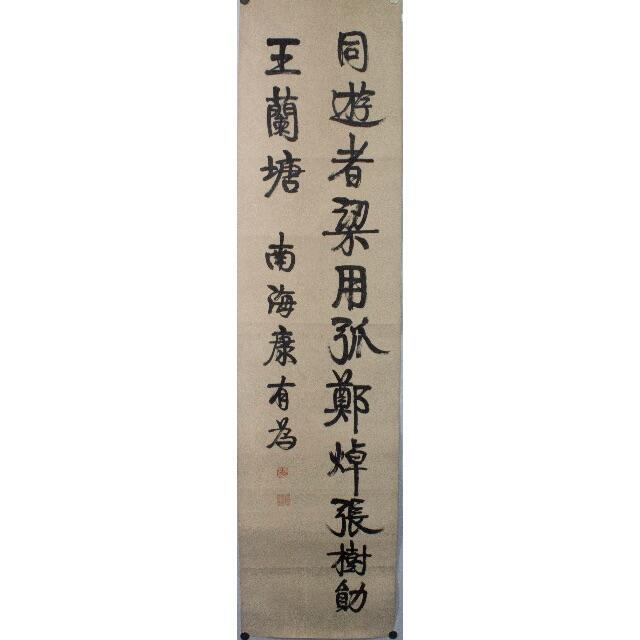 同遊者梁用弧鄭焯張樹勛
王蘭塘 南海康有為